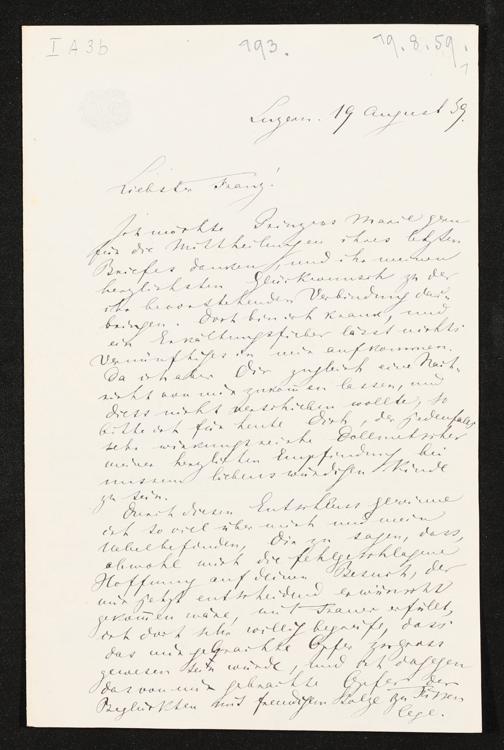 I A 3b
193.
19.8.59.
Luzern. 19 August 59.
Liebster Franz!
Ich möchte Prinzess Marie gern
für die Mittheilungen ihres letzten
Briefes danken, und ihr meinen
herzlichsten Glückwunsch zu der
ihr bevorstehenden Verbindung dar-
bringen. Doch bin ich krank, und
ein Erkältungsfieber lässt nichts
Vernünftiges in mir aufkommen.
Da ich aber Dir zugleich eine Nach-
richt von mir zukommen lassen, und
diess nicht verschieben wollte, so
bitte ich für heute Dich, der jedenfalls
sehr wirkungsreiche Dollmetscher
meiner herzlichen Empfindung bei
unsrem liebenswürdigen Kinde
zu sein.
Durch diesen Entschluss gewinne
ich so viel über mich und mein
Uebelbefinden, Dir zu sagen, dass,
obwohl mich die fehlgeschlagene
Hoffnung auf deinen Besuch, der
mir jetzt entscheidend erwünscht
gekommen wäre, mit Trauer erfüllt,
ich doch sehr willig begreife, dass
das mir gebrachte Opfer zu gross
gewesen sein würde, und ich dagegen
das von mir gebrachte Opfer der
Beglückten mit freudigem Stolze zu Füssen
lege.